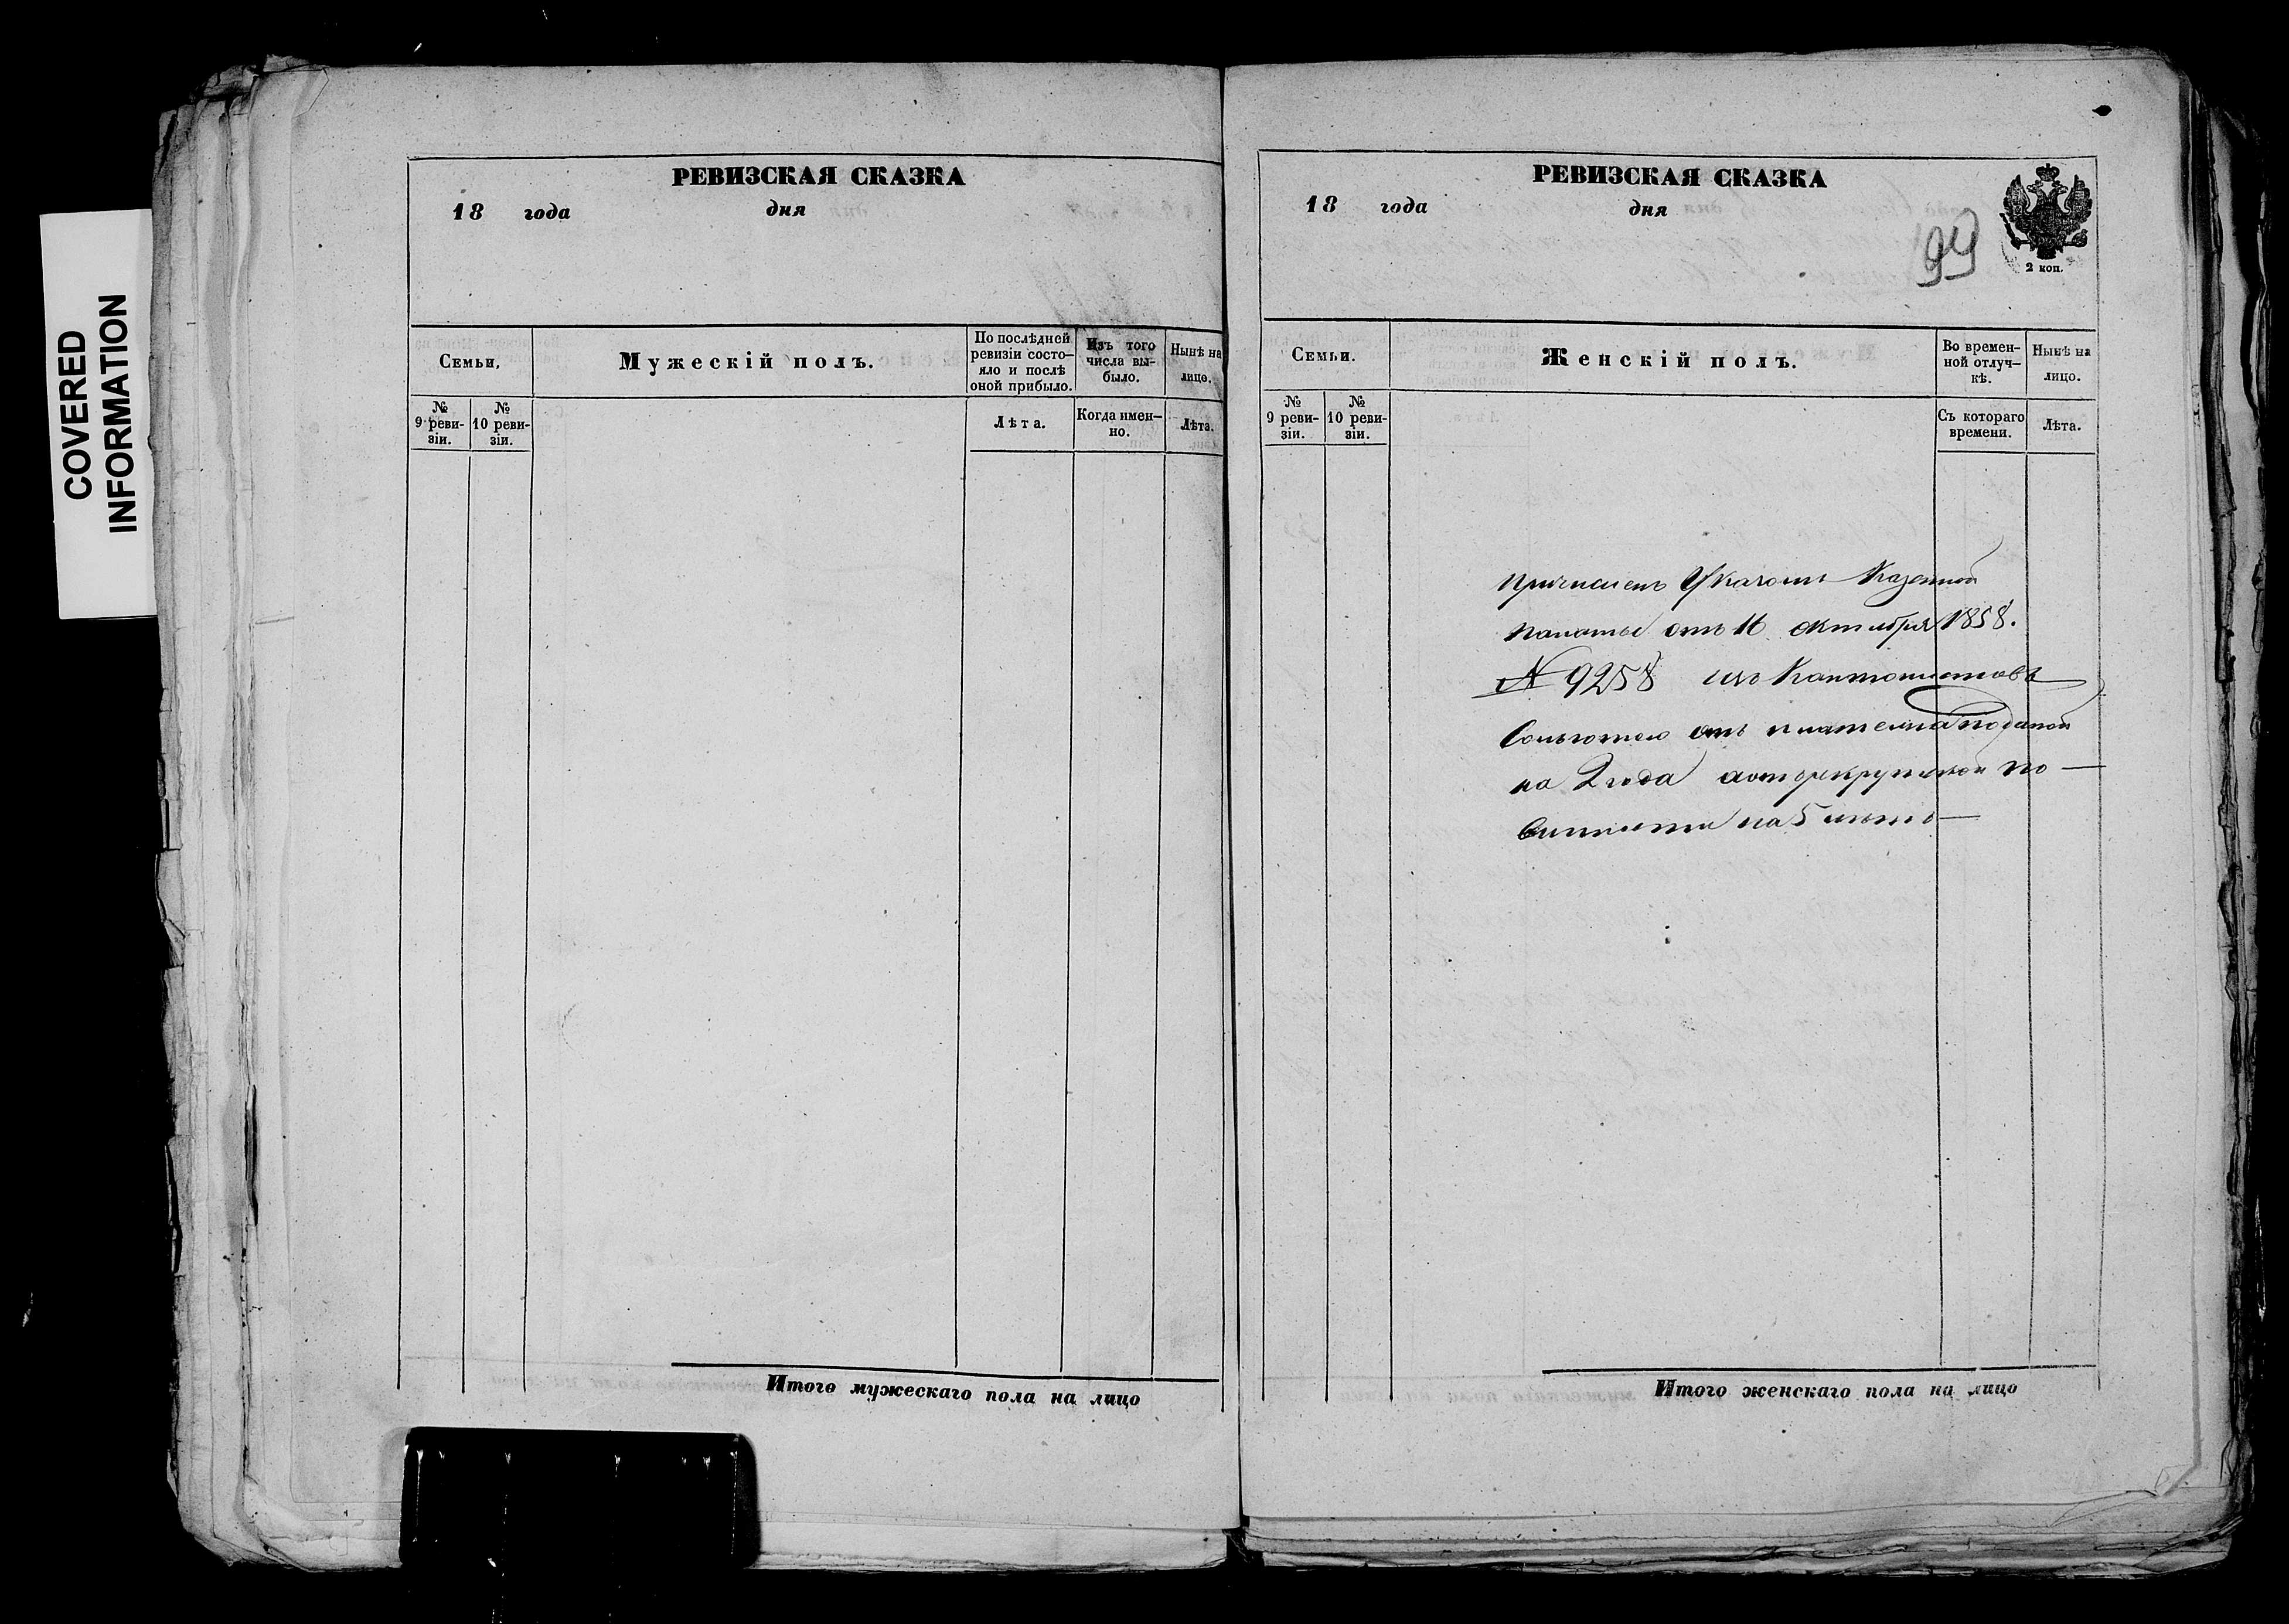 COVERED
INFORMATION
РЕВИЗСКАЯ СКАЗКА
18 года дня
Семьи, Мужескій полъ. По послѣдней ревизіи состо— яло и послѣ оной прибыло. Изъ того числа вы— было. Нынѣ на лицо.
№ 9 реви- зіи. № 10 реви- зіи. Лѣта. Когда имен— но. Лѣта.
Итого мужескаго пола на лицо
РЕВИЗСКАЯ СКАЗКА
18 года дня
99
2 коп.
Семьи. Женскій полъ. Во времен- ной отлуч— кѣ. Нынѣ на лицо.
№ 9 реви- зіи. № 10 реви- зіи. Съ котораго времени. Лѣта.
причисленъ Указомъ Казенной
палаты отъ 16 октября 1858.
№ 9258 изъ Кантонистовъ
Сольготою отъ платежа податей
на 2 года аотъ рекрутской по—
винности на 5 лѣтъ—
Итого женскаго пола на лицо